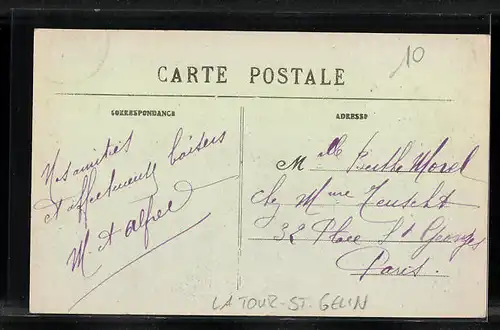 10
CARTE POSTALE
CORRESPONDANCE
Nos amitiés
et affectueux baisers
M et Alfred
ADRESSE
Mlle Berthe Morel
chez Mme
32 Place St Georges
Paris.
LA TOUR-ST. GELIN